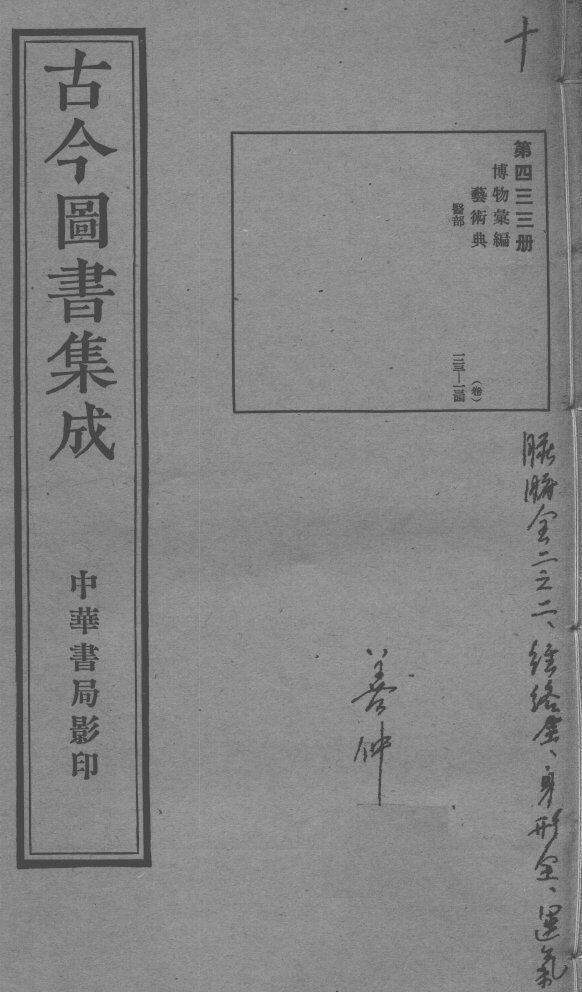 十
第四三三册
博物彙編
藝術典
（卷）
醫部
腑全二之二、經絡全、身形全、運氣
善仲
古今圖書集成
中華書局影印